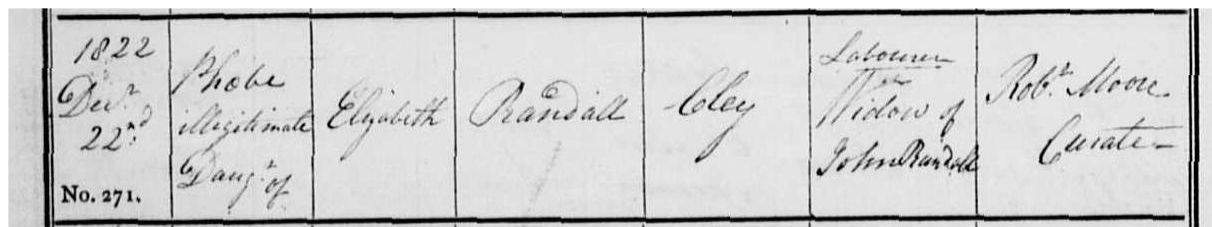 1822
Decr.
22nd.
No. 271.
Phobe
illegitimate
Daugr. of
Elizabeth
Randall
Cley
Labourer
Widow of
John Randall
Robt. Moore
Curate